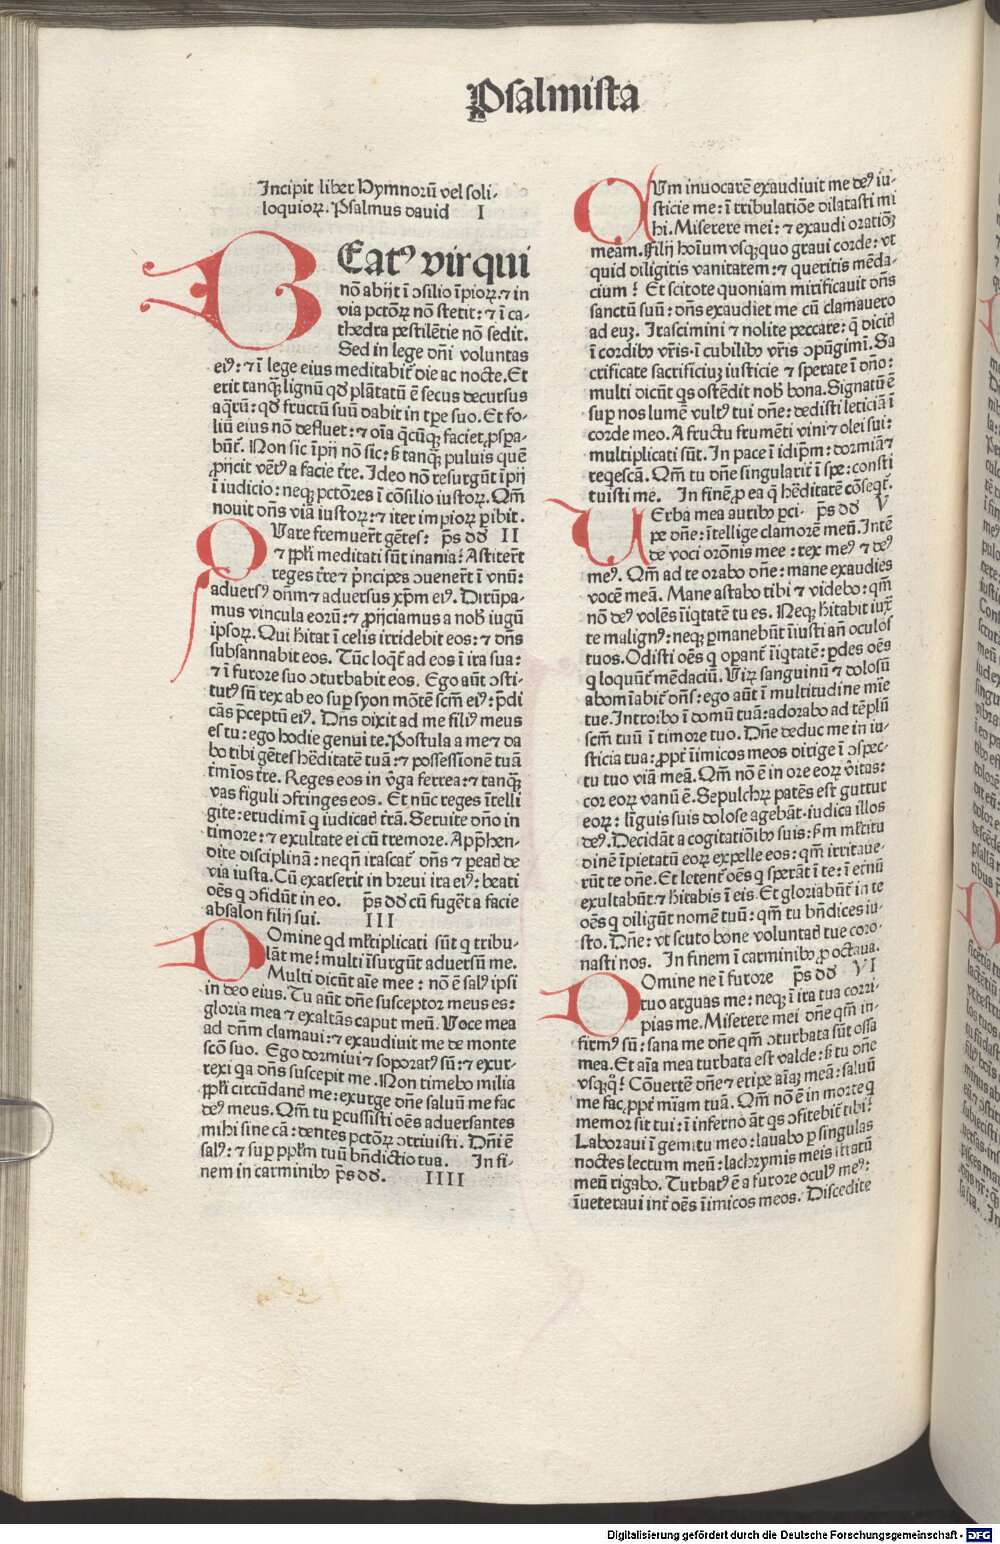 Psalmista
Incipit liber Hymnorū vel soli-
loquioꝝ. Psalmus dauid I
BEatꝰ vir qui
nō abijt ī ↄsilio īpioꝝ: ⁊ in
via pctōꝝ nō stetit: ⁊ ī ca-
thedra pestilētie nō sedit.
Sed in lege dn̄i voluntas
eiꝰ: ⁊ ī lege eius meditabit̄ die ac nocte. Et
erit tanq̄ꝫ lignū qd̄ plātatū ē secus decursus
aq̄rū: qd̄ fructū suū dabit in tꝑe suo. Et fo-
liū eius nō defluet: ⁊ oīa q̄cūqꝫ faciet ꝓsꝑa-
būt̄. Non sic īpij nō sic: ß tanq̄ꝫ puluis quē
ꝓijcit vēt a facie tr̄e. Ideo nō resurgūt īpij
ī iudicio: neqꝫ pctōres ī cōsilio iustoꝝ. Qm̄
nouit dn̄s viā iustoꝝ: ⁊ iter impioꝝ ꝑibit.
QUare fremuer̄t gētes: p̄s dd̄ II
⁊ pp̄li meditati sūt inania: Astiter̄t
reges tr̄e ⁊ p̄ncipes ↄuener̄t ī vnū:
aduersꝰ dn̄m ⁊ aduersus xp̄m eiꝰ. Dirūpa-
mus vincula eorū: ⁊ ꝓijciamus a nob̄ iugū
ipsoꝝ. Qui h̄itat ī celis irridebit eos: ⁊ dn̄s
subsannabit eos. Tūc loqt̄ ad eos ī ira sua:
⁊ ī furore suo ↄturbabit eos. Ego aūt ↄsti-
tutꝰ sū rex ab eo suꝑ syon mōtē scm̄ eiꝰ: p̄di
cās p̄ceptū eiꝰ. Dn̄s dixit ad me filiꝰ meus
es tu: ego hodie genui te. Postula a me ⁊ da
bo tibi gētes hēditatē tuā: ⁊ possessionē tuā
tm̄īos tr̄e. Reges eos in v̄ga ferrea: ⁊ tanq̄ꝫ
vas figuli ↄfringes eos. Et nūc reges ītelli
gite: erudimī q iudicat tr̄ā. Seruite dn̄o in
timore: ⁊ exultate ei cū tremore. App̄hen-
dite disciplinā: neqn̄ irascat̄ dn̄s ⁊ peat de
via iusta. Cū exarserit in breui ira eiꝰ: beati
oēs q ↄfidūt in eo. p̄s dd̄ cū fuget̄ a facie
absalon filij sui. III
DOmine qd ml̄tiplicati sūt q tribu-
lāt me: multi īsurgūt aduersū me.
Multi dicūt aīe mee: nō ē salꝰ ipsi
in deo eius. Tu aūt dn̄e susceptor meus es:
gloria mea ⁊ exaltās caput meū. Voce mea
ad dn̄m clamaui: ⁊ exaudiuit me de monte
scō suo. Ego dormiui ⁊ soporatꝰ sū: ⁊ exur-
rexi qa dn̄s suscepit me. Non timebo milia
pp̄li circūdant me: exurge dn̄e saluū me fac
deꝰ meus. Qm̄ tu ꝑcussisti oēs aduersantes
mihi sine cā: dentes pctōꝝ ↄtriuisti. Dn̄i ē
salꝰ: ⁊ suꝑ pp̄l̄m tuū bn̄dictio tua. In fi-
nem in carminibꝰ p̄s dd̄. IIII
CUm inuocarē exaudiuit me deꝰ iu-
sticie me: ī tribulatiōe dilatasti mi
hi. Miserere mei: ⁊ exaudi oratiōꝫ
meam. Filij hoīum vsqꝫquo graui corde: vt
quid diligitis vanitatem: ⁊ queritis mēda-
cium: Et scitote quoniam mirificauit dn̄s
sanctū suū: dn̄s exaudiet me cū clamauero
ad euꝫ. Irascimini ⁊ nolite peccare: q̄ dicit
ī cordibꝰ vr̄is. ī cubilibꝰ vr̄is ↄpūgimī. Sa
crificate sacrificiuꝫ iusticie ⁊ sperate ī dn̄o:
multi dicūt qs ostēdit nob̄ bona. Signatū ē
suꝑ nos lumē vultꝰ tui dn̄e: dedisti leticiā ī
corde meo. A fructu frumēti vini ⁊ olei sui:
multiplicati sūt. In pace ī idip̄m: dormiā ⁊
reqescā. Qm̄ tu dn̄e singularit̄ ī spe: consti
tuisti me. In finē ꝓ ea q̄ hēditatē cōseqt̄.
UErba mea auribꝰ ꝑci- p̄s dd̄ V
pe dn̄e: ītellige clamorē meū. Intē
de voci orōnis mee: rex meꝰ ⁊ deꝰ
meꝰ. Qm̄ ad te orabo dn̄e: mane exaudies
vocē meā. Mane astabo tibi ⁊ videbo: qm̄
nō deꝰ volēs īiqtatē tu es. Neqꝫ h̄itabit iux̄
te malignꝰ: neqꝫ ꝑmanebūt īiusti añ oculos
tuos. Odisti oēs q oꝑant̄ īiqtatē: ꝑdes oēs
q loquūt̄ mēdaciū. Viꝝ sanguinū ⁊ dolosū
abomīabit̄ dn̄s: ego aūt ī multitudine mīe
tue. Introibo ī domū tuā: adorabo ad tēplū
scm̄ tuū ī timore tuo. Dn̄e deduc me in iu-
sticia tua: ꝓpt̄ īimicos meos dirige ī ↄspec-
tu tuo viā meā. Qm̄ nō ē in ore eoꝝ v̄itas:
cor eoꝝ vanū ē. Sepulchꝝ patēs est guttur
eoꝝ: līguis suis dolose agebāt. iudica illos
deꝰ. Decidāt a cogitatiōibꝰ suis: ßm ml̄titu
dinē īpietatū eoꝝ expelle eos: qm̄ irritaue-
rūt te dn̄e. Et letent̄ oēs q sperāt ī te: ī etnū
exultabūt. ⁊ h̄itabis ī eis. Et gloriabūt̄ in te
oēs q diligūt nomē tuū: qm̄ tu bn̄dices iu-
sto. Dn̄e: vt scuto bone voluntat tue coro-
nasti nos. In finem ī carminibꝰ ꝓ octaua.
DOmine ne ī furore p̄s dd̄ VI
tuo arguas me: neqꝫ ī ira tua corri
pias me. Miserere mei dn̄e qm̄ in-
firmꝰ sū: sana me dn̄e qm̄ ↄturbata sūt ossa
mea. Et aīa mea turbata est valde: ß tu dn̄e
vsqꝫqꝰ: Cōuertē dn̄e ⁊ eripe aīaꝫ meā: saluū
me fac ꝓpt̄ mīam tuā. Qm̄ nō ē in morte q
memor sit tui: ī inferno āt qs ↄfitebit̄ tibi:
Laboraui ī gemitu meo: lauabo ꝑ singulas
noctes lectum meū: lachrymis meis stratū
meū rigabo. Turbatꝰ ē a furore oculꝰ meꝰ:
īueteraui int̄ oēs īimicos meos. Discedite
Digitalisierung gefördert durch die Deutsche Forschungsgemeinschaft - DFG